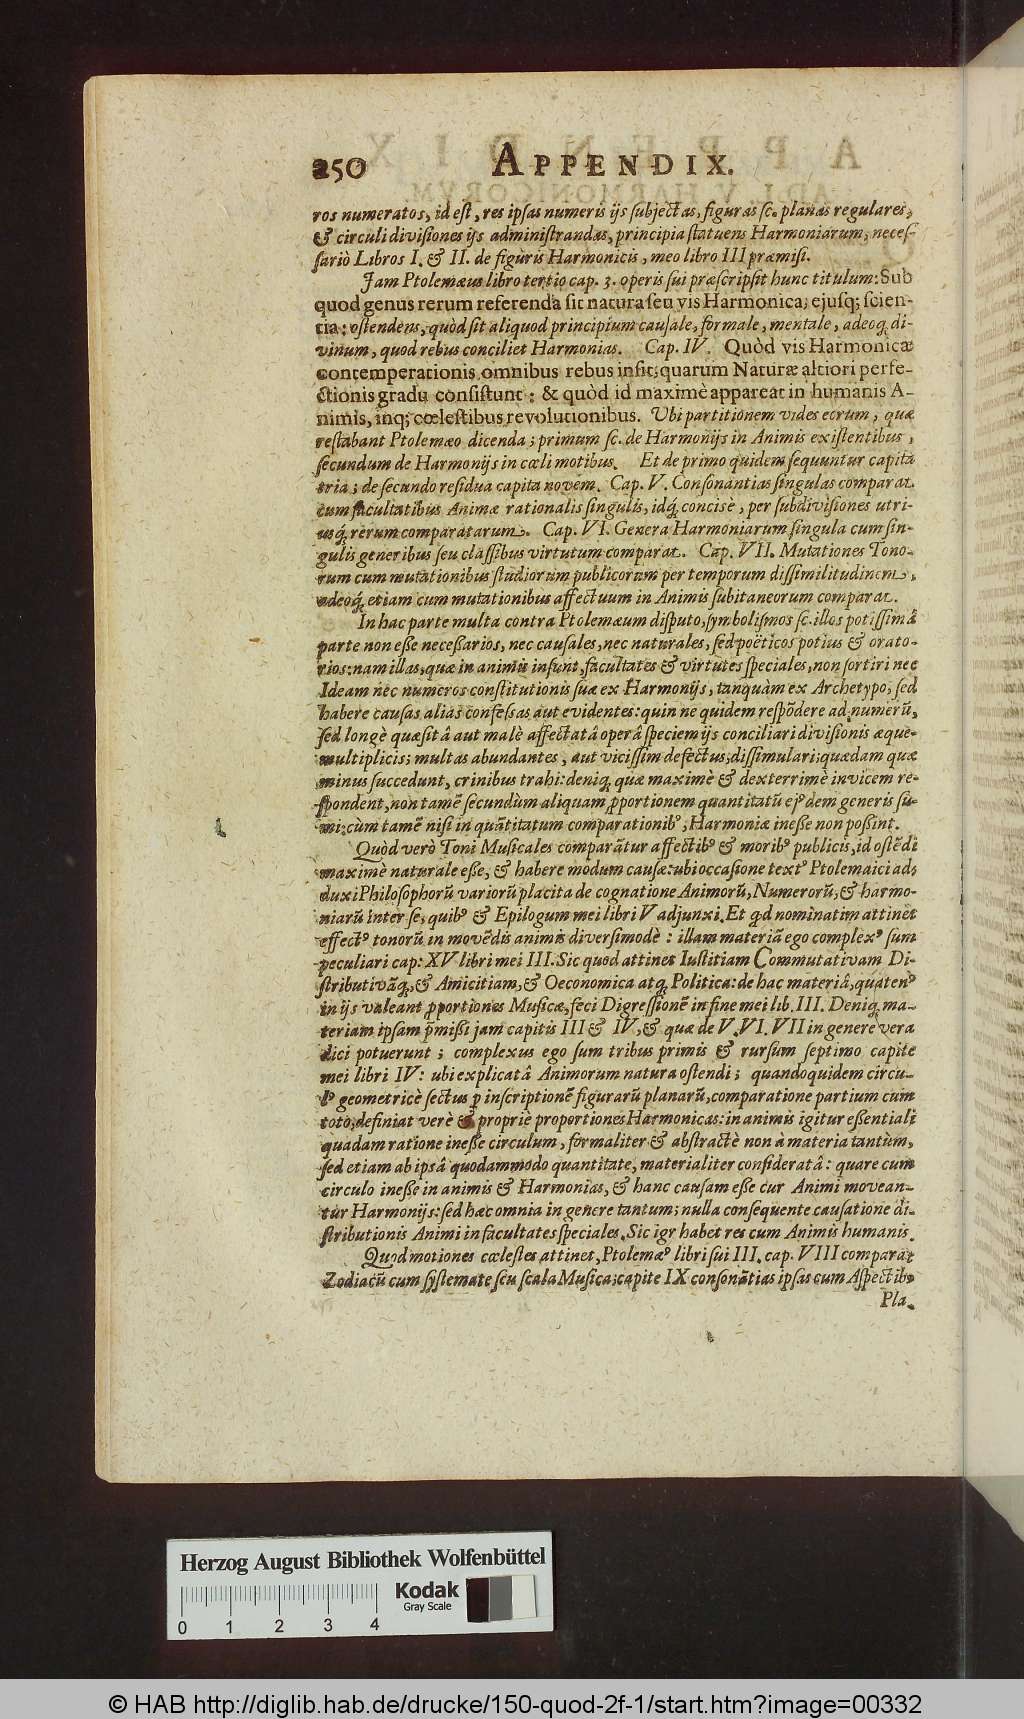 250 APPENDIX.
ros numeratos, id est, res ipsas numeris ijs subjectas, figuras sc. planas regulares,
& circuli divisiones ijs administrandas, principia statuens Harmoniarum, neces-
sariò Libros I. & II. de figuris Harmonicis, meo libro III præmisi.
Jam Ptolemæus libro tertio cap. 3. operis sui præscripsit hunc titulum: Sub
quod genus rerum referenda sit natura seu vis Harmonica, ejusq; scien-
tia: ostendens, quòd sit aliquod principium causale, formale, mentale, adeoq́ di-
vinum, quod rebus conciliet Harmonias. Cap. IV. Quòd vis Harmonicæ
contemperationis omnibus rebus insit; quarum Naturæ altiori perfe-
ctionis gradu consistunt: & quòd id maximè appareat in humanis A-
nimis, inq; cœlestibus revolutionibus. Ubi partitionem vides eorum, quæ
restabant Ptolemæo dicenda; primum sc. de Harmonijs in Animis existentibus,
secundum de Harmonijs in cœli motibus. Et de primo quidem sequuntur capita
tria; de secundo residua capita novem. Cap. V. Consonantias singulas comparat
cum facultatibus Animæ rationalis singulis, idq́; concisè, per subdivisiones utri-
usq́; rerum comparatarum. Cap. VI. Genera Harmoniarum singula cum sin-
gulis generibus seu classibus virtutum comparat. Cap. VII. Mutationes Tono-
rum cum mutationibus studiorum publicorum per temporum dissimilitudinem,
adeoq́; etiam cum mutationibus affectuum in Animis subitaneorum comparat.
In hac parte multa contra Ptolemæum disputo, symbolismos sc. illos potissimâ
parte non esse necessarios, nec causales, nec naturales, sed poëticos potius & orato-
rios: nam illas, quæ in animis insunt, facultates & virtutes speciales, non sortiri nec
Ideam nec numeros constitutionis suæ ex Harmonijs, tanquàm ex Archetypo, sed
habere causas alias confessas aut evidentes: quin ne quidem respõdere ad numerũ,
sed longè quæsitâ aut malè affectatâ operâ speciem ijs conciliari divisionis æque-
multiplicis; multas abundantes, aut vicissim defectus; dissimulari; quædam quæ
minus succedunt, crinibus trahi: deniq́; quæ maximè & dexterrimè invicem re-
spondent, non tamẽ secundùm aliquam ꝓportionem quantitatũ ejꝰdem generis su-
mi: cùm tamẽ nisi in quãtitatum comparationibꝰ, Harmoniæ inesse non possint.
Quòd verò Toni Musicales comparãtur affectibꝰ & moribꝰ publicis, id ostẽdi
maximè naturale esse, & habere modum causæ: ubi occasione textꝰ Ptolemaici ad-
duxi Philosophorũ variorũ placita de cognatione Animorũ, Numerorũ, & harmo-
niarũ inter se, quibꝰ & Epilogum mei libri V adjunxi. Et qd nominatim attinet
effectꝰ tonorũ in movẽdis animis diversimodè: illam materiã ego complexꝰ sum
peculiari cap: XV libri mei III. Sic quod attinet Iustitiam Commutativam Di-
stributivãq́;, & Amicitiam, & Oeconomica atq́; Politica: de hac materiâ, quatenꝰ
in ijs valeant ꝓportiones Musicæ, feci Digressionẽ in fine mei lib. III. Deniq́; ma-
teriam ipsam p̃missi jam capitis III & IV, & quæ de V. VI. VII in genere vera
dici potuerunt; complexus ego sum tribus primis & rursum septimo capite
mei libri IV: ubi explicatâ Animorum natura ostendi; quandoquidem circu-
lꝰ geometricè sectus ꝑ inscriptionẽ figurarũ planarũ, comparatione partium cum
toto, definiat verè & propriè proportiones Harmonicas: in animis igitur essentiali
quadam ratione inesse circulum, formaliter & abstractè non à materia tantùm,
sed etiam ab ipsâ quodammodo quantitate, materialiter consideratâ: quare cum
circulo inesse in animis & Harmonias, & hanc causam esse cur Animi movean-
tur Harmonijs: sed hæc omnia in genere tantum; nulla consequente causatione di-
stributionis Animi in facultates speciales. Sic igr habet res cum Animis humanis.
Quod motiones cœlestes attinet, Ptolemæꝰ libri sui III. cap. VIII comparat
Zodiacũ cum systemate seu scala Musica; capite IX consonãtias ipsas cum Aspectibꝰ
Pla-
Herzog August Bibliothek Wolfenbüttel
Kodak
Gray Scale
0 1 2 3 4
© HAB http://diglib.hab.de/drucke/150-quod-2f-1/start.htm?image=00332